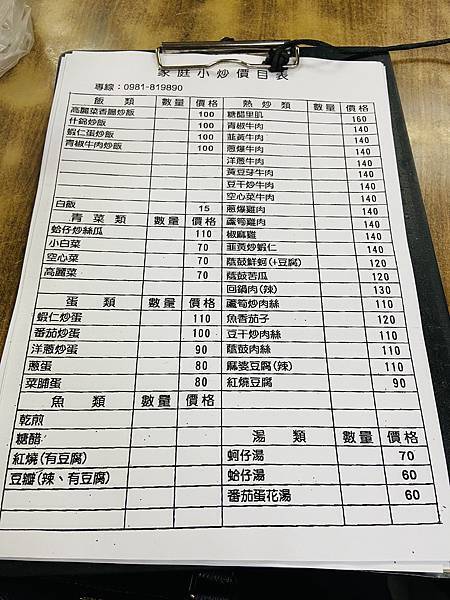 家庭小炒價目表
專線：0981-819890
飯 類 數量 價格
高麗菜香腸炒飯 100
什錦炒飯 100
蝦仁蛋炒飯 100
青椒牛肉炒飯 100
白飯 15
青菜類 數量 價格
蛤仔炒絲瓜 110
小白菜 70
空心菜 70
高麗菜 70
蛋 類 數量 價格
蝦仁炒蛋 110
番茄炒蛋 100
洋蔥炒蛋 90
蔥蛋 80
菜脯蛋 80
魚 類 數量 價格
乾煎
糖醋
紅燒(有豆腐)
豆瓣(辣、有豆腐)
熱炒類 數量 價格
糖醋里肌 160
青椒牛肉 140
韮黃牛肉 140
蔥爆牛肉 140
洋蔥牛肉 140
黃豆芽牛肉 140
豆干炒牛肉 140
空心菜牛肉 140
蔥爆雞肉 140
蘆筍雞肉 140
椒麻雞 140
韮黃炒蝦仁 140
蔭鼓鮮蚵(+豆腐) 120
蔭鼓苦瓜 120
回鍋肉(辣) 130
蘆筍炒肉絲 110
魚香茄子 120
豆干炒肉絲 110
蔭鼓肉絲 110
麻婆豆腐(辣) 110
紅燒豆腐 90
湯 類 數量 價格
蚵仔湯 70
蛤仔湯 60
番茄蛋花湯 60